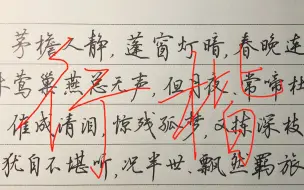 茅檐人静,蓬窗灯暗,春晚连
莺巢燕总无声,但月夜、常啼杜
催成清泪,惊残孤梦,又拣深枝
犹自不堪听,况半世、飘然羁旅